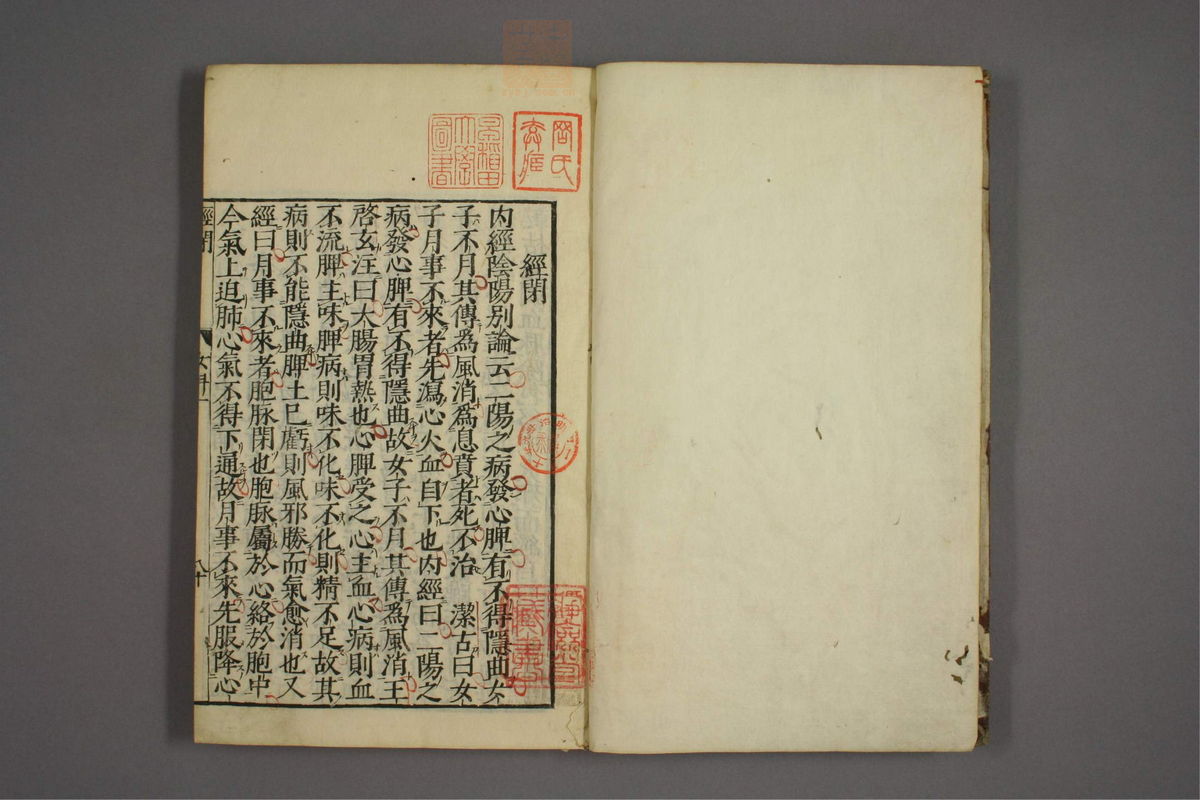 經閉
内經陰陽别論云二陽之病發心脾有不得隱曲女
子不月其傳爲風消爲息賁者死不治 潔古曰女
子月事不來者先瀉心火血自下也内經曰二陽之
病發心脾有不得隱曲故女子不月其傳爲風消王
啓玄注曰大腸胃熱也心脾受之心主血心病則血
不流脾主味脾病則味不化味不化則精不足故其
病則不能隱曲脾土已虧則風邪勝而氣愈消也又
經曰月事不來者胞脉閉也胞脉屬於心絡於胞中
今氣上迫肺心氣不得下通故月事不來先服降心
經閉